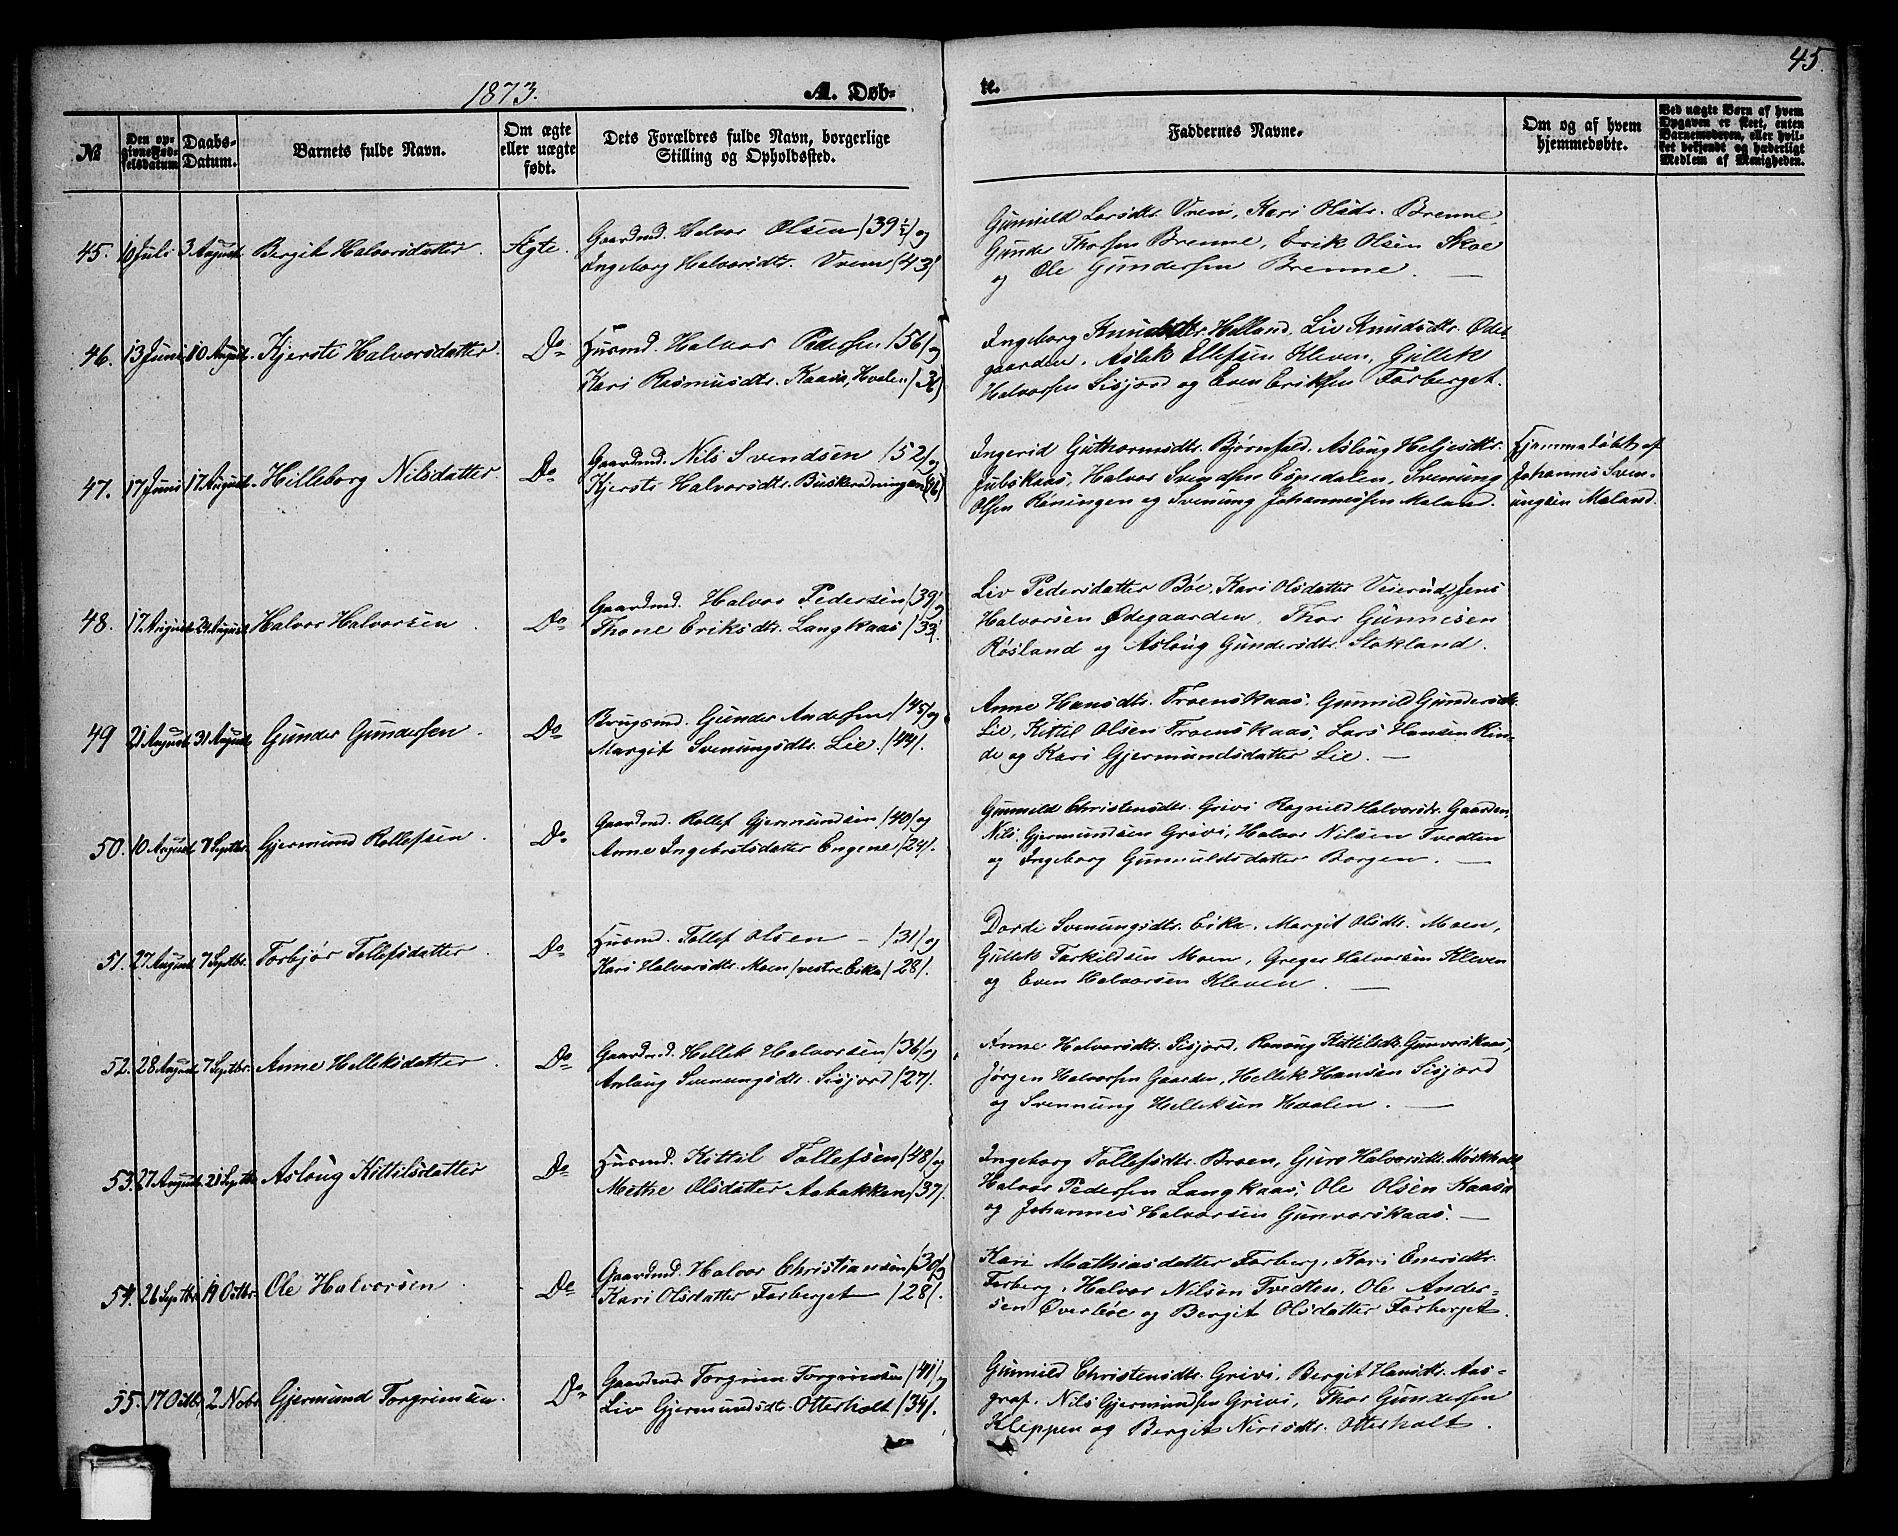 45.
1873.
A. Døbte.
№
Den opgivne Fødselsdatum
Daabs-Datum.
Barnets fulde Navn.
Om ægte eller uægte født.
Dets Forældres fulde Navn, borgerlige Stilling og Opholdssted.
Faddernes Navne.
Om og af hvem hjemmedøbte.
Ved uægte Børn af hvem Opgaven er skeet, enten Barnemoderen, eller hvilket bekjendt og hæderligt Medlem af Menigheden.
45. 10 Juli 3 August Bergit Halvorsdatter. Ægte. Gaardmd. Halvor Olsen /39½/ og
Ingeborg Halvorsdtr. Vrem /43/
Gunnild Larsdtr. Vrem, Kari Olsdr. Brenne
Gunder Thorsen Brenne, Erik Olsen Skoe
og Ole Gundersen Brenne.
46. 13 Juni 10 August. Kjersti Halvorsdatter. Do Husmd. Halvor Pedersen /56/ og
Kari Rasmusdtr. Kaasa, Hvalen /36/
Ingeborg Knudsdtr. Helland, Liv Knudsdtr. Øde-
gaarden, Aslak Ellefsen Kleven, Gullek
Halvorsen Sisjord og Even Eriksen Farberget.
47. 17 Juni 17 August. Hilleborg Nilsdatter. Do Gaardmd. Nils Svendsen /52/ og
Kjersti Halvorsdtr. Buskeradningen /46/
Ingerid Guthormsdtr. Bjørnfald, Aslaug Heljesdtr.
Jubskaas, Halvor Svendsen Espedalen, Svenung
Olsen Røningen og Svenung Johannessen Maland.
Hjemmedøbt af
Johannes Sven-
ungsen Maland.
48. 17 August 24 August Halvor Halvorsen. Do Gaardmd. Halvor Pedersen /39/ og
Thone Eriksdtr. Langkaas /33/.
Liv Pedersdatter Bøe, Kari Olsdatter Veserud, Jens
Halvorsen Ødegaarden, Thor Gunnisen
Røsland og Aslaug Gundersdtr. Stokland.
49 21 August 31 August. Gunder Gundersen. Do Brugsmd. Gunder Andersen /45/ og
Margit Svenungsdtr. Lie. /44/.
Anne Hansdtr. Froenskaas, Gunnild Gundersdtr.
Lie, Kittil Olsen Froenskaas, Lars Hansen Rin-
de og Kari Gjermundsdatter Lie.
50. 10 August 7 Septbr. Gjermund Rollefsen. Do Gaardmd. Rollef Gjermundsen /40/ og
Anne Ingebretsdatter Engene /24/.
Gunnild Christensdtr. Grivi Ragnild Halvorsdtr. Gaarden,
Nils Gjermundsen Grivi, Halvor Nilsen Tvedten
og Ingeborg Gunnuldsdatter Borgen.
51. 27 August 7 Septbr. Torbjør Tollefsdatter. Do Husmd. Tollef Olsen /31/ og
Kari Halvorsdtr. Moen /vestre Eika/ /28/.
Dorde Svenungsdtr. Eika, Margit Olsdtr. Moen,
Gullek Tarkildsen Moen, Greger Halvorsen Kleven
og Even Halvorsen Kleven.
52. 28 August 7 Septbr. Anne Helleksdatter. Do Gaardmd. Hellek Halvorsen /36/ og
Anlaug Svenungsdtr. Sisjord /27/.
Anne Halvorsdtr. Sisjord, Ronaug Kittilsdtr. Gunvorskaas,
Jørgen Halvorsen Gaarden, Hellek Hansen Sisjord
og Svennung Helleksen Hvalen.
53. 27 August 21 Septbr Aslaug Kittilsdatter Do Husmd. Kittil Tollefsen /48/ og
Methe Olsdatter Aabakken /37/.
Ingeborg Tollefsdtr. Broen, Guro Halvorsdtr. Mørkholt
Halvor Pedersen Langkaas, Ole Olsen Kaasa
og Johannes Halvorsen Gunvorskaas.
54. 26 Septbr. 19 Octbr. Ole Halvorsen. Do Gaardmd. Halvor Christiansen /30/ og
Kari Olsdatter Farberget /28/.
Kari Mathiasdatter Farberg, Kari Enersdtr.
Farberg, Halvor Nilsen Tvedten, Ole Ander-
sen Overbøe og Bergit Olsdatter Farberget.
55. 17 Octbr. 2 Nobr. Gjermund Torgrimsen. Do Gaardmd. Torgrim Torgrimsen /41/ og
Liv Gjermundsdtr. Otterholt /34/.
Gunnild Christensdtr. Grivi, Bergit Hansdtr. Aas-
graf, Nils Gjermundsen Grivi, Thor Gundersen
Kleppen og Bergit Nirisdtr. Otterholt.